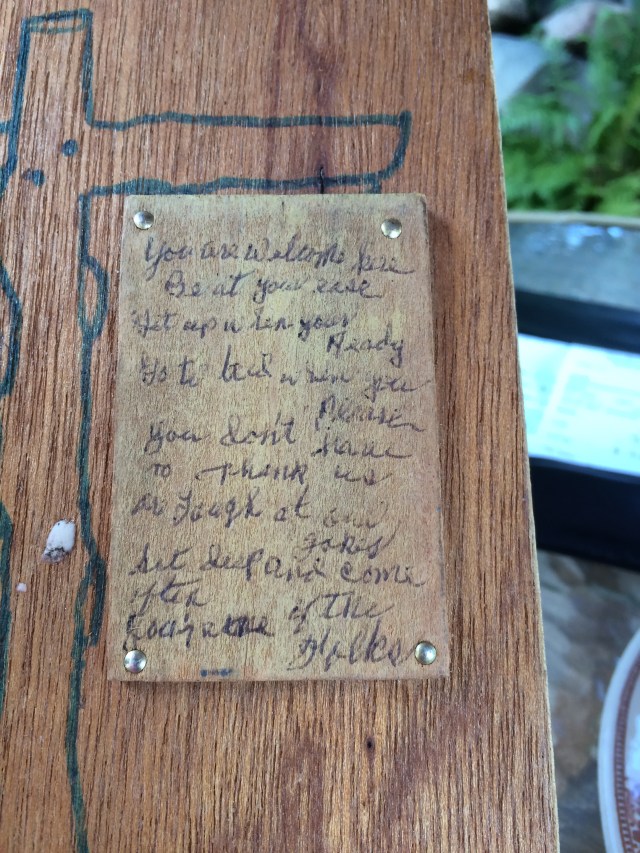 You are welcome here
Be at your ease
Get up when your
Ready
Go to bed when you
Please
You don't have
to Thank us
or Laugh at our
jokes
Set deep and come
often
Your one of the
Folks